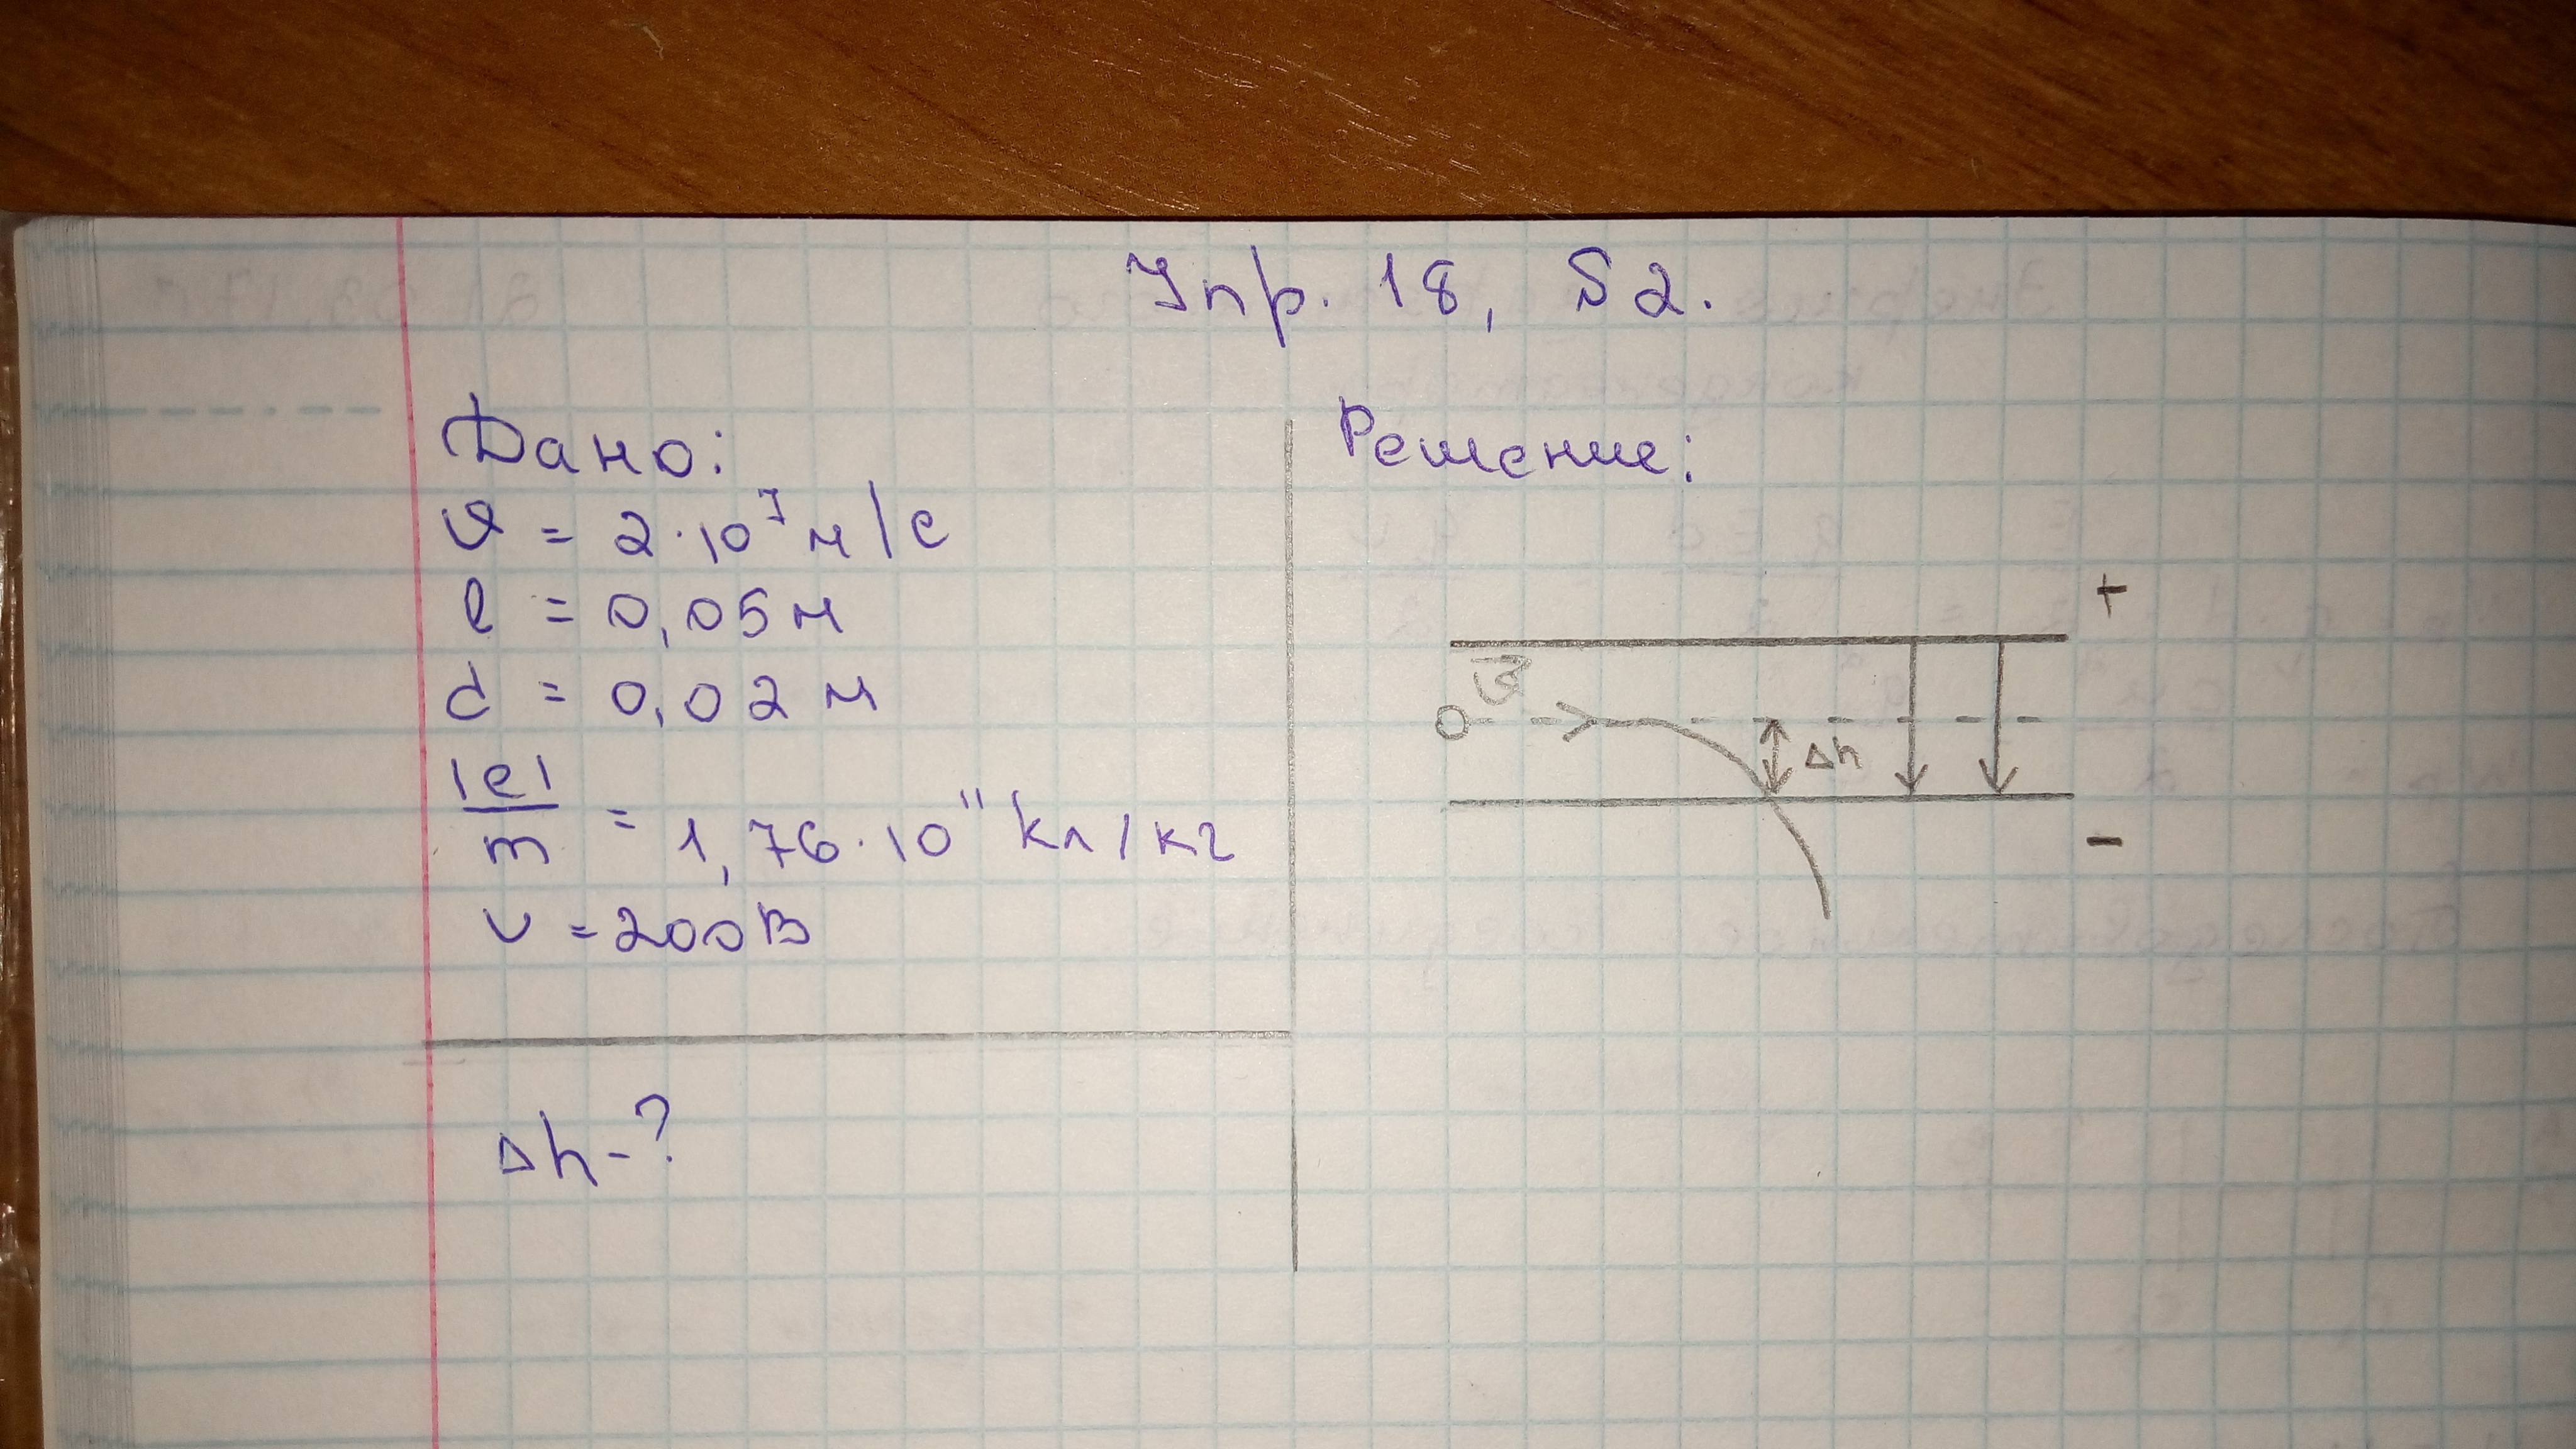 Упр. 18, №2.
Дано:
υ = 2·10⁷ м/с
l = 0,05 м
d = 0,02 м
|e|/m = 1,76·10¹¹ Кл/кг
U = 200 В
Δh - ?
Решение:
+
υ⃗
Δh
−